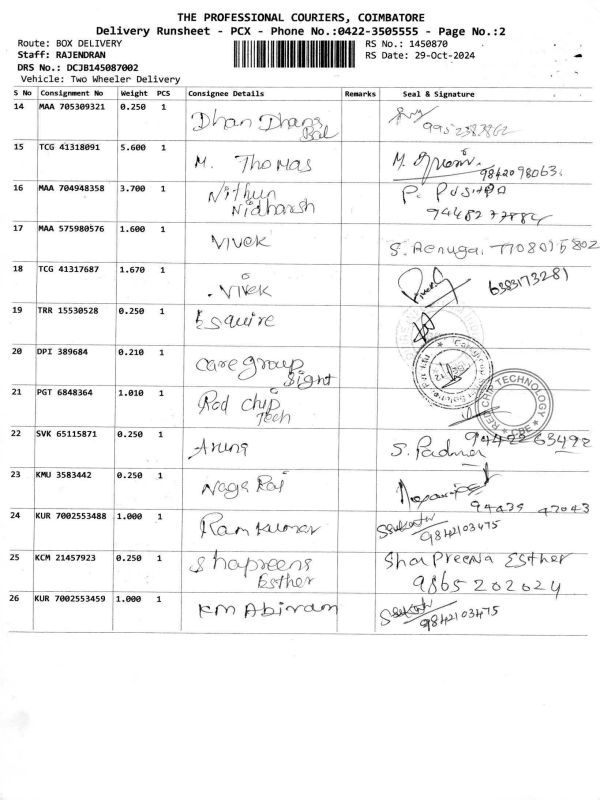 THE PROFESSIONAL COURIERS, COIMBATORE
Delivery Runsheet - PCX - Phone No.:0422-3505555 - Page No.:2
Route: BOX DELIVERY RS No.: 1450870
Staff: RAJENDRAN RS Date: 29-Oct-2024
DRS No.: DCJB145087002
Vehicle: Two Wheeler Delivery
S No Consignment No Weight PCS Consignee Details Remarks Seal & Signature
14 MAA 705309321 0.250 1 Dhan Dhans
Bal
15 TCG 41318091 5.600 1 M. Thomas M.
9842098063
16 MAA 704948358 3.700 1 Nithun P. Pushpa
Nidharsh
17 MAA 575980576 1.600 1 Vivek S. Renuga. 7708015802
18 TCG 41317687 1.670 1 Vivek 6383173281
19 TRR 15530528 0.250 1 Esquire
20 DPI 389684 0.210 1 Care group
Sight
21 PGT 6848364 1.010 1 Red chip RED CHIP TECHNOLOGY
Tech CBE
22 SVK 65115871 0.250 1 Aruna 9442263492
S. Padma
23 KMU 3583442 0.250 1 Naga Raj
94439 47043
24 KUR 7002553488 1.000 1 Ram Kumar 9842103475
25 KCM 21457923 0.250 1 Shapreena Sharpreena Esther
Esther 9865202024
26 KUR 7002553459 1.000 1 KM Abiram 9842103475